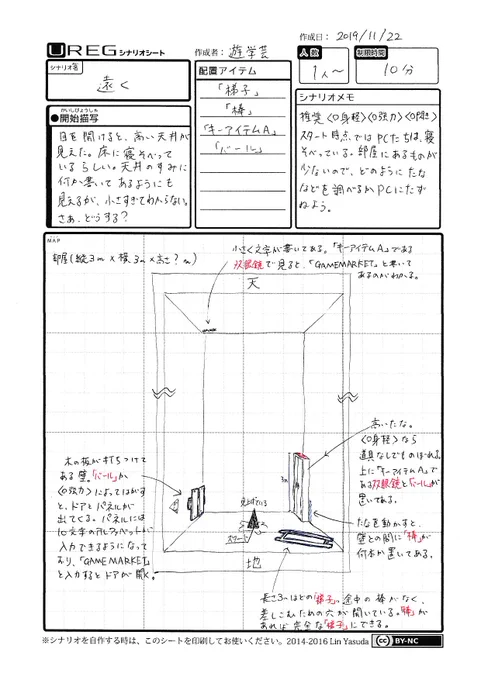 作成日： 2019/11/22
UREG シナリオシート
作成者： 遊学芸
人数
1人～
制限時間
10分
シナリオ名
遠く
配置アイテム
「梯子」
「棒」
「キーアイテムA」
「バール」
シナリオメモ
推奨〈◎身軽〉〈◎強力〉〈◎閃き〉
スタート時点ではPCたちは、寝
そべっている。部屋にあるものが
少ないので、どのようにたな
などを調べるかPCにたず
ねよう。
かいしびょうしゃ
●開始描写
目を開けると、高い天井が
見えた。床に寝そべって
いるらしい。天井のすみに
何か書いてあるようにも
見えるが、小さすぎてわからない。
さあ、どうする？
MAP
部屋(縦3m × 横3m × 高さ？m)
小さく文字が書いてある。「キーアイテムA」である
双眼鏡で見ると、「GAMEMARKET」と書いて
あるのがわかる。
天
高いたな。
〈◎身軽〉なら
道具なしでものぼれる。
上に「キーアイテムA」で
ある双眼鏡と「バール」が
置いてある。
3m
たなを動かすと、
壁との間に「棒」が
何本か置いてある。
木の板が打ちつけて
ある壁。「バール」か
〈◎強力〉によってはがす
と、ドアとパネルが
出てくる。パネルには
10文字のアルファベットが
入力できるようになって
おり、「GAMEMARKET」
と入力するとドアが開く。
スタート
地
長さ3mほどの「梯子」。途中の棒がなく、
差しこむための穴が開いている。「棒」が
あれば完全な「梯子」にできる。
※シナリオを自作する時は、このシートを印刷してお使いください。2014-2016 Lin Yasuda
cc BY-NC